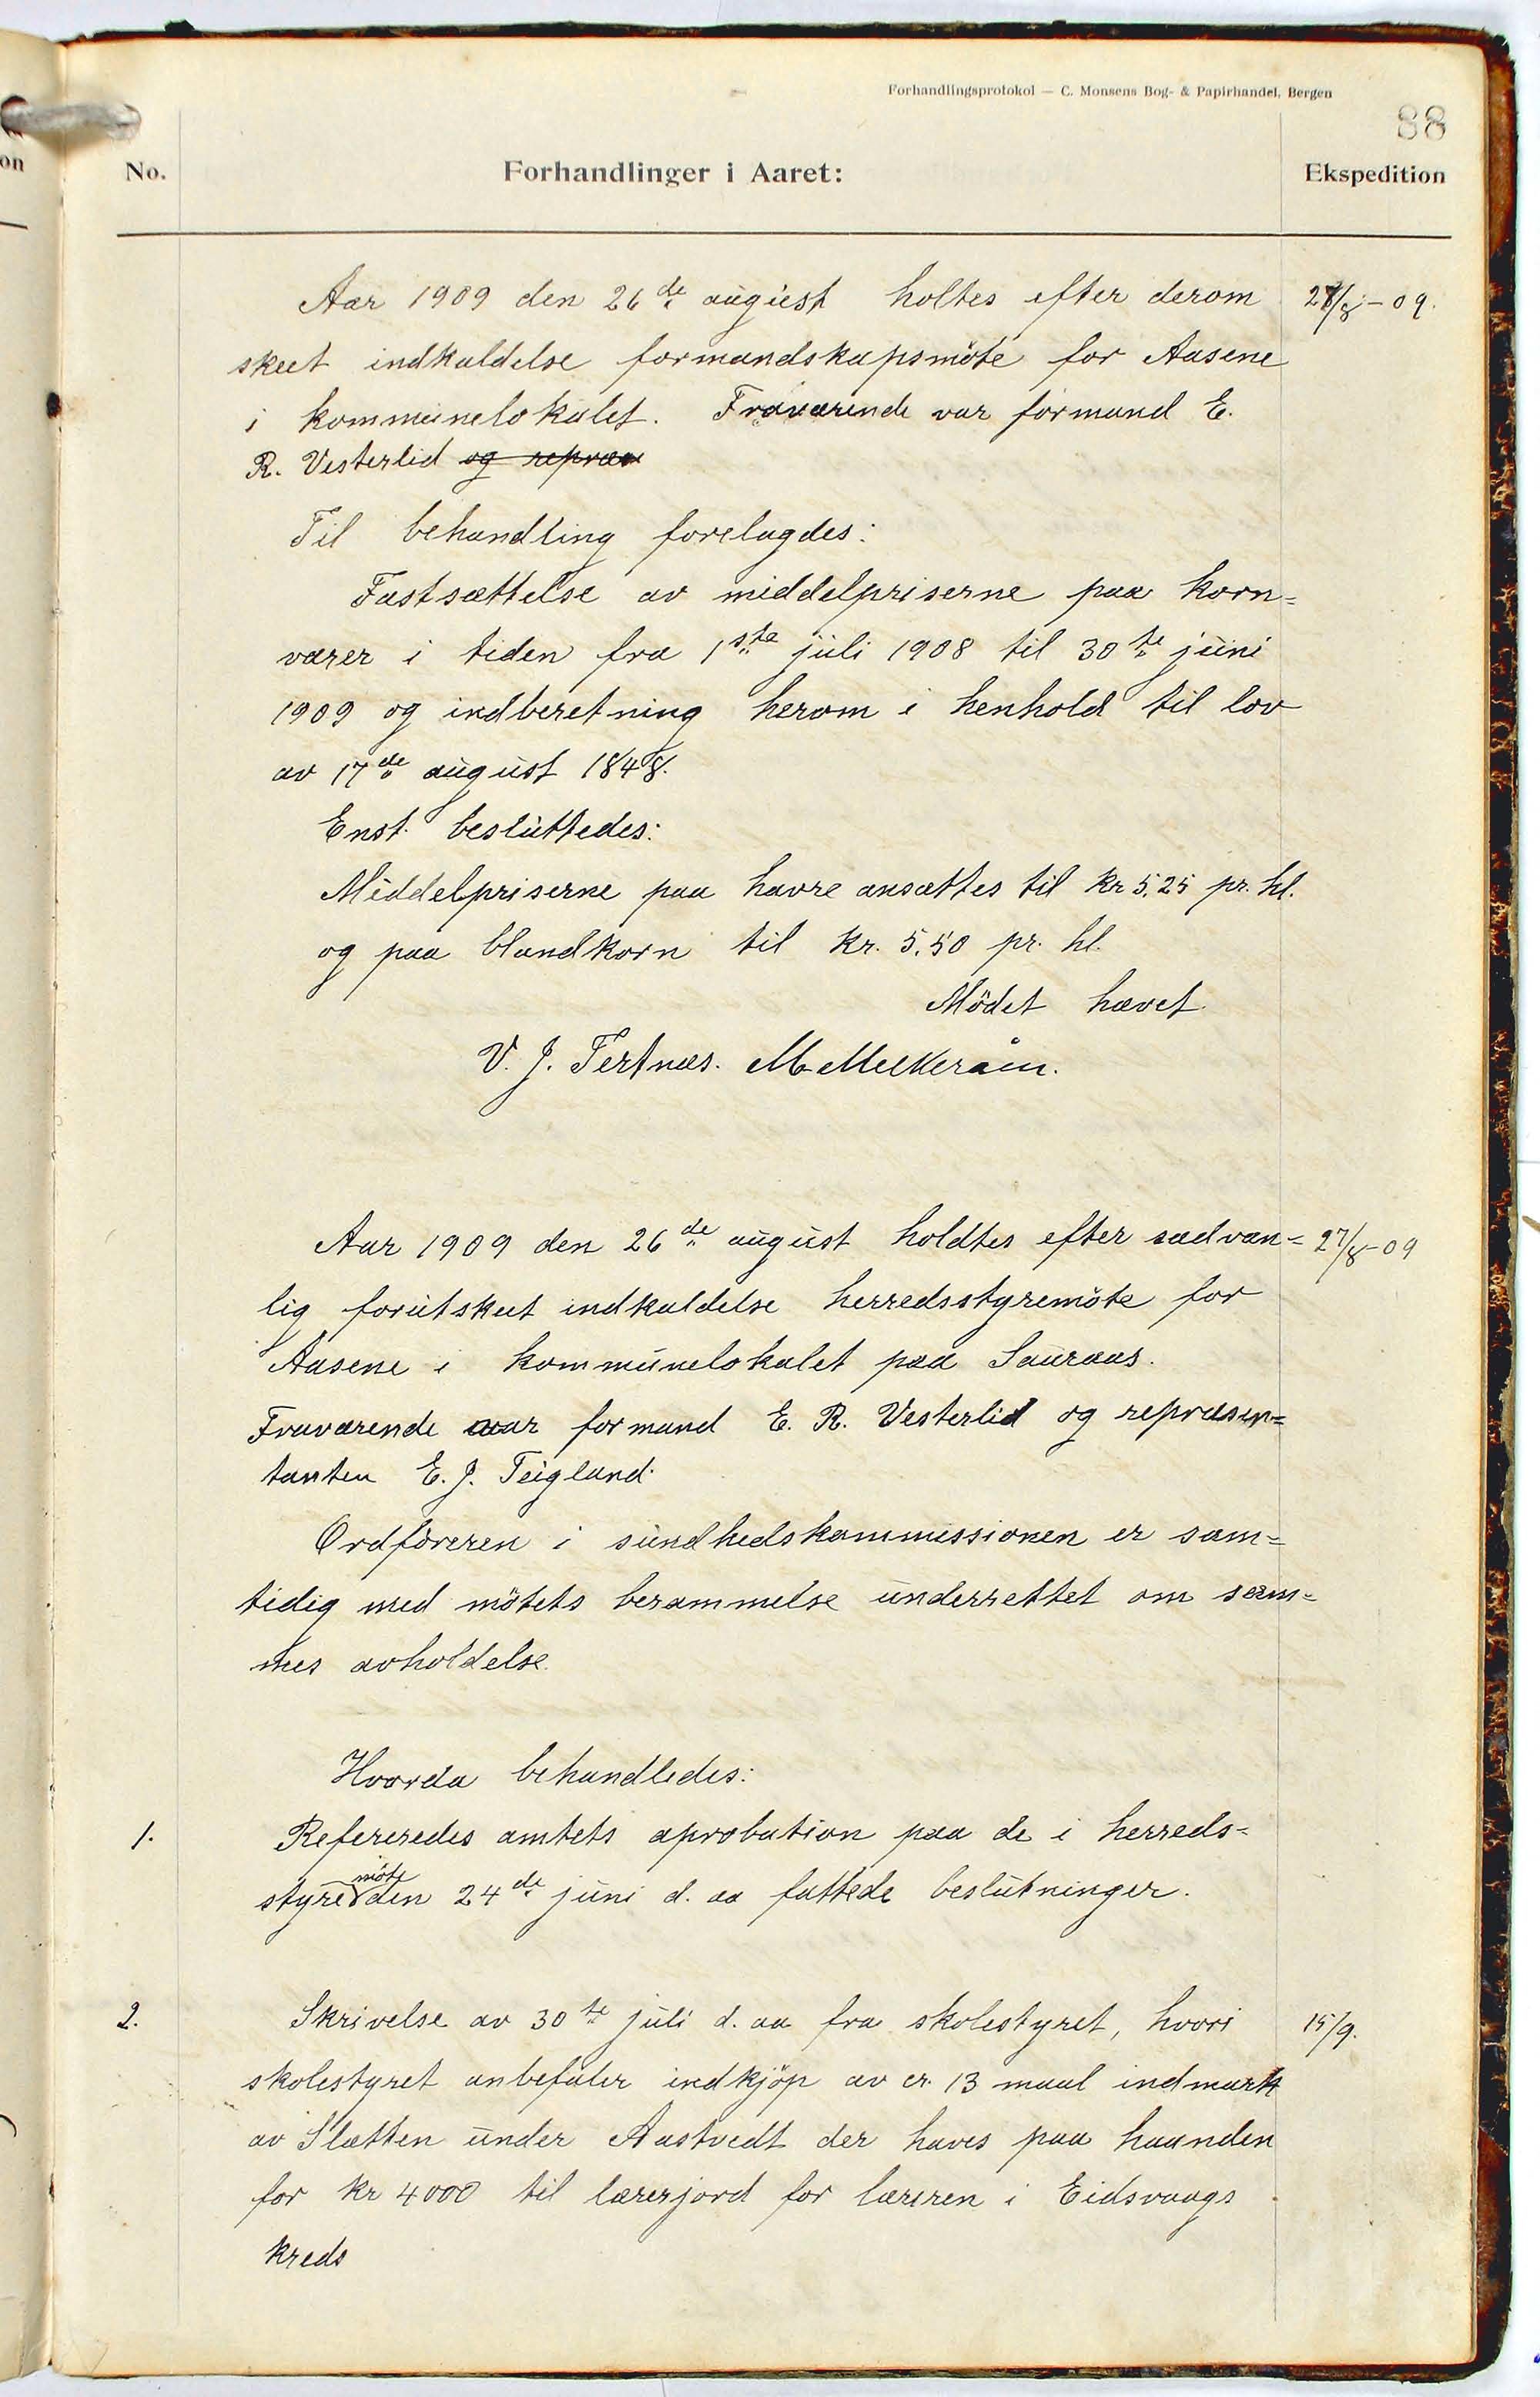 Forhandlingsprotokol — C. Monsens Bog- & Papirhandel, Bergen
88
No.
Forhandlinger i Aaret:
Ekspedition
on
Aar 1909 den 26de august holtes efter derom 27/8-09.
skeet indkaldelse formandskapsmöte for Aasene
i kommunelokalet. Fraværende var formand E.
R. Vesterlid og repræs
Til behandling forelagdes:
Fastsættelse av middelpriserne paa korn=
varer i tiden fra 1ste juli 1908 til 30te juni
1909 og indberetning herom i henhold til lov
av 17de august 1848.
Enst. besluttedes:
Middelpriserne paa havre ansættes til kr 5,25 pr. hl.
og paa blandkorn til kr. 5,50 pr. hl.
Mödet hævet.
V. J. Tertnæs. M Melkeraaen.
Aar 1909 den 26de august holdtes efter sædvan= 27/8-09
lig forutskeet indkaldelse herredsstyremöte for
Aasene i kommunelokalet paa Sauraas.
Fraværende var formand E. R. Vesterlid og repræsen=
tanten E. J. Teigland.
Ordföreren i sundhedskommissionen er sam=
tidig med mötets berammelse underrettet om sam=
mes avholdelse.
Hvorda behandledes:
1. Refereredes amtets aprobation paa de i herreds=
möte
styre den 24de juni d. aa fattede beslutninger.
2. Skrivelse av 30te juli d. aa fra skolestyret, hvori 15/9.
skolestyret anbefaler indkjöp av cr. 13 maal indmark
av Slætten under Aastvedt der haves paa haanden
for kr 4000 til lærerjord for læreren i Eidsvaags
kreds